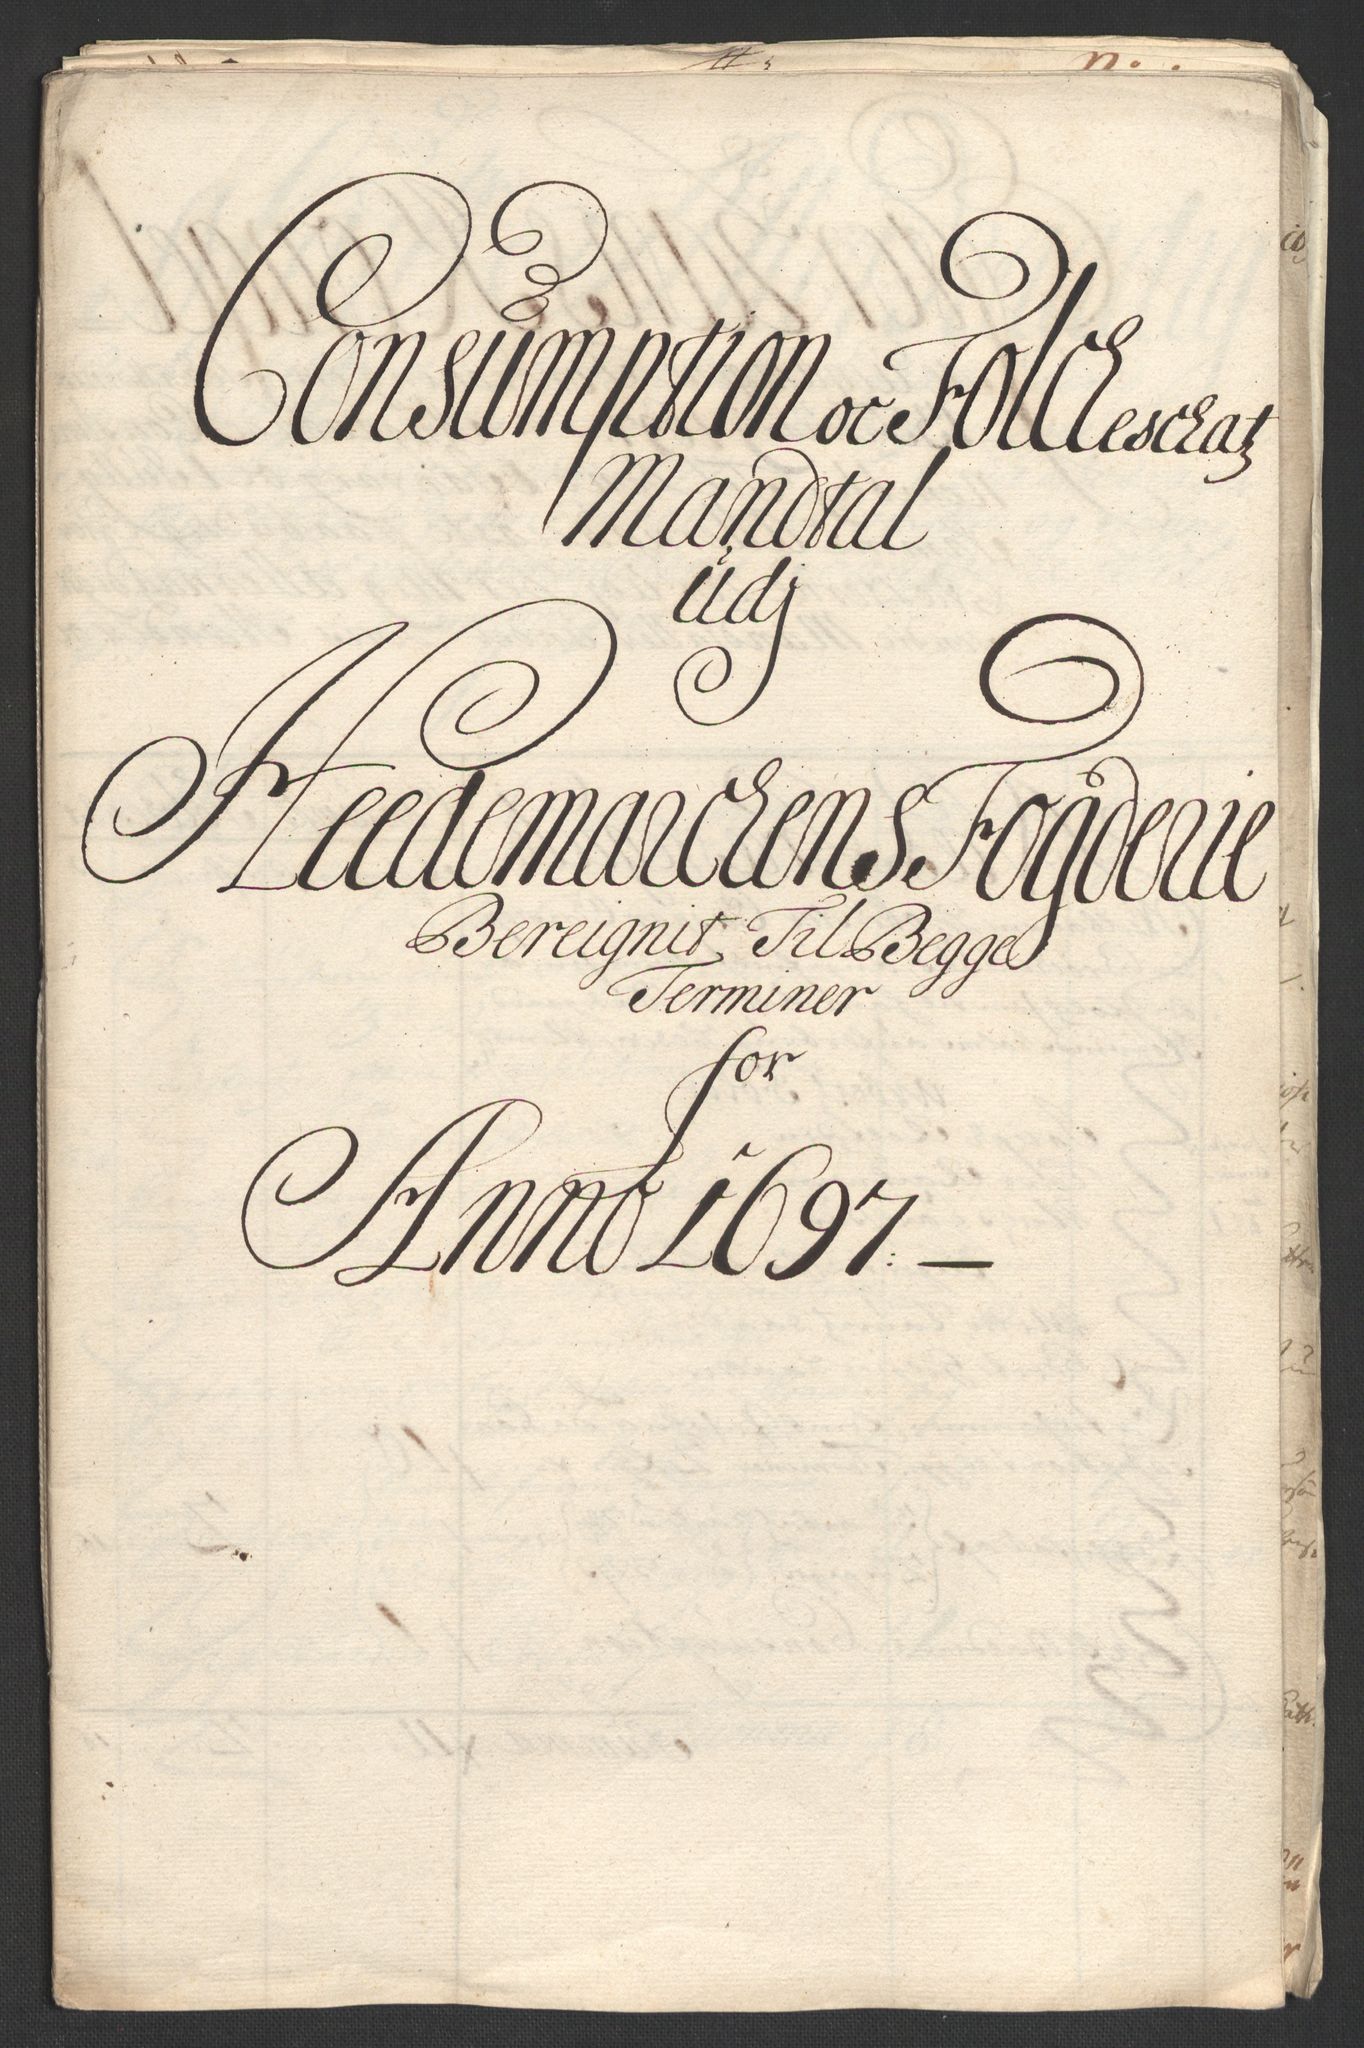 Consumption oc Folckeschatz
Mandtal
Udj
Heedemarckens Fogderie
Bereignit Til Begge
Terminer
for
Anno 1697. —